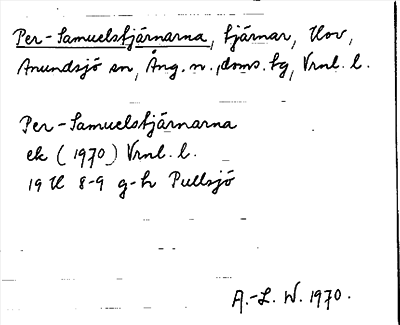 Per-Samuelstjärnarna, tjärnar, Hov,
Anundsjö sn, Ång. n., doms. tg, Vrnl. l.
Per-Samuelstjärnarna
ek (1970) Vrnl. l.
19 H 8-9 g-h Pullsjö
A.-L. W. 1970.